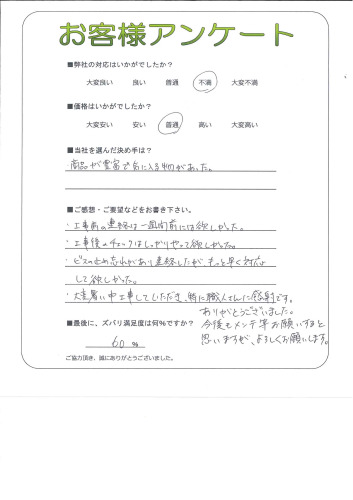 お客様アンケート
■弊社の対応はいかがでしたか？
大変良い 良い 普通 不満 大変不満
■価格はいかがでしたか？
大変安い 安い 普通 高い 大変高い
■当社を選んだ決め手は？
・商品が豊富で気に入る物があった。
■ご感想・ご要望などをお書き下さい。
・工事前の連絡は一週間前には欲しかった。
・工事後のチェックはしっかりやって欲しかった。
・ビスの止め忘れがあり連絡したが、もっと早く対応
して欲しかった。
・大変暑い中工事していただき、特に職人さんに感謝です。
ありがとうございました。
今後もメンテ等お願いすると
思いますが、よろしくお願いします。
■最後に、ズバリ満足度は何%ですか？
60 %
ご協力頂き、誠にありがとうございました。